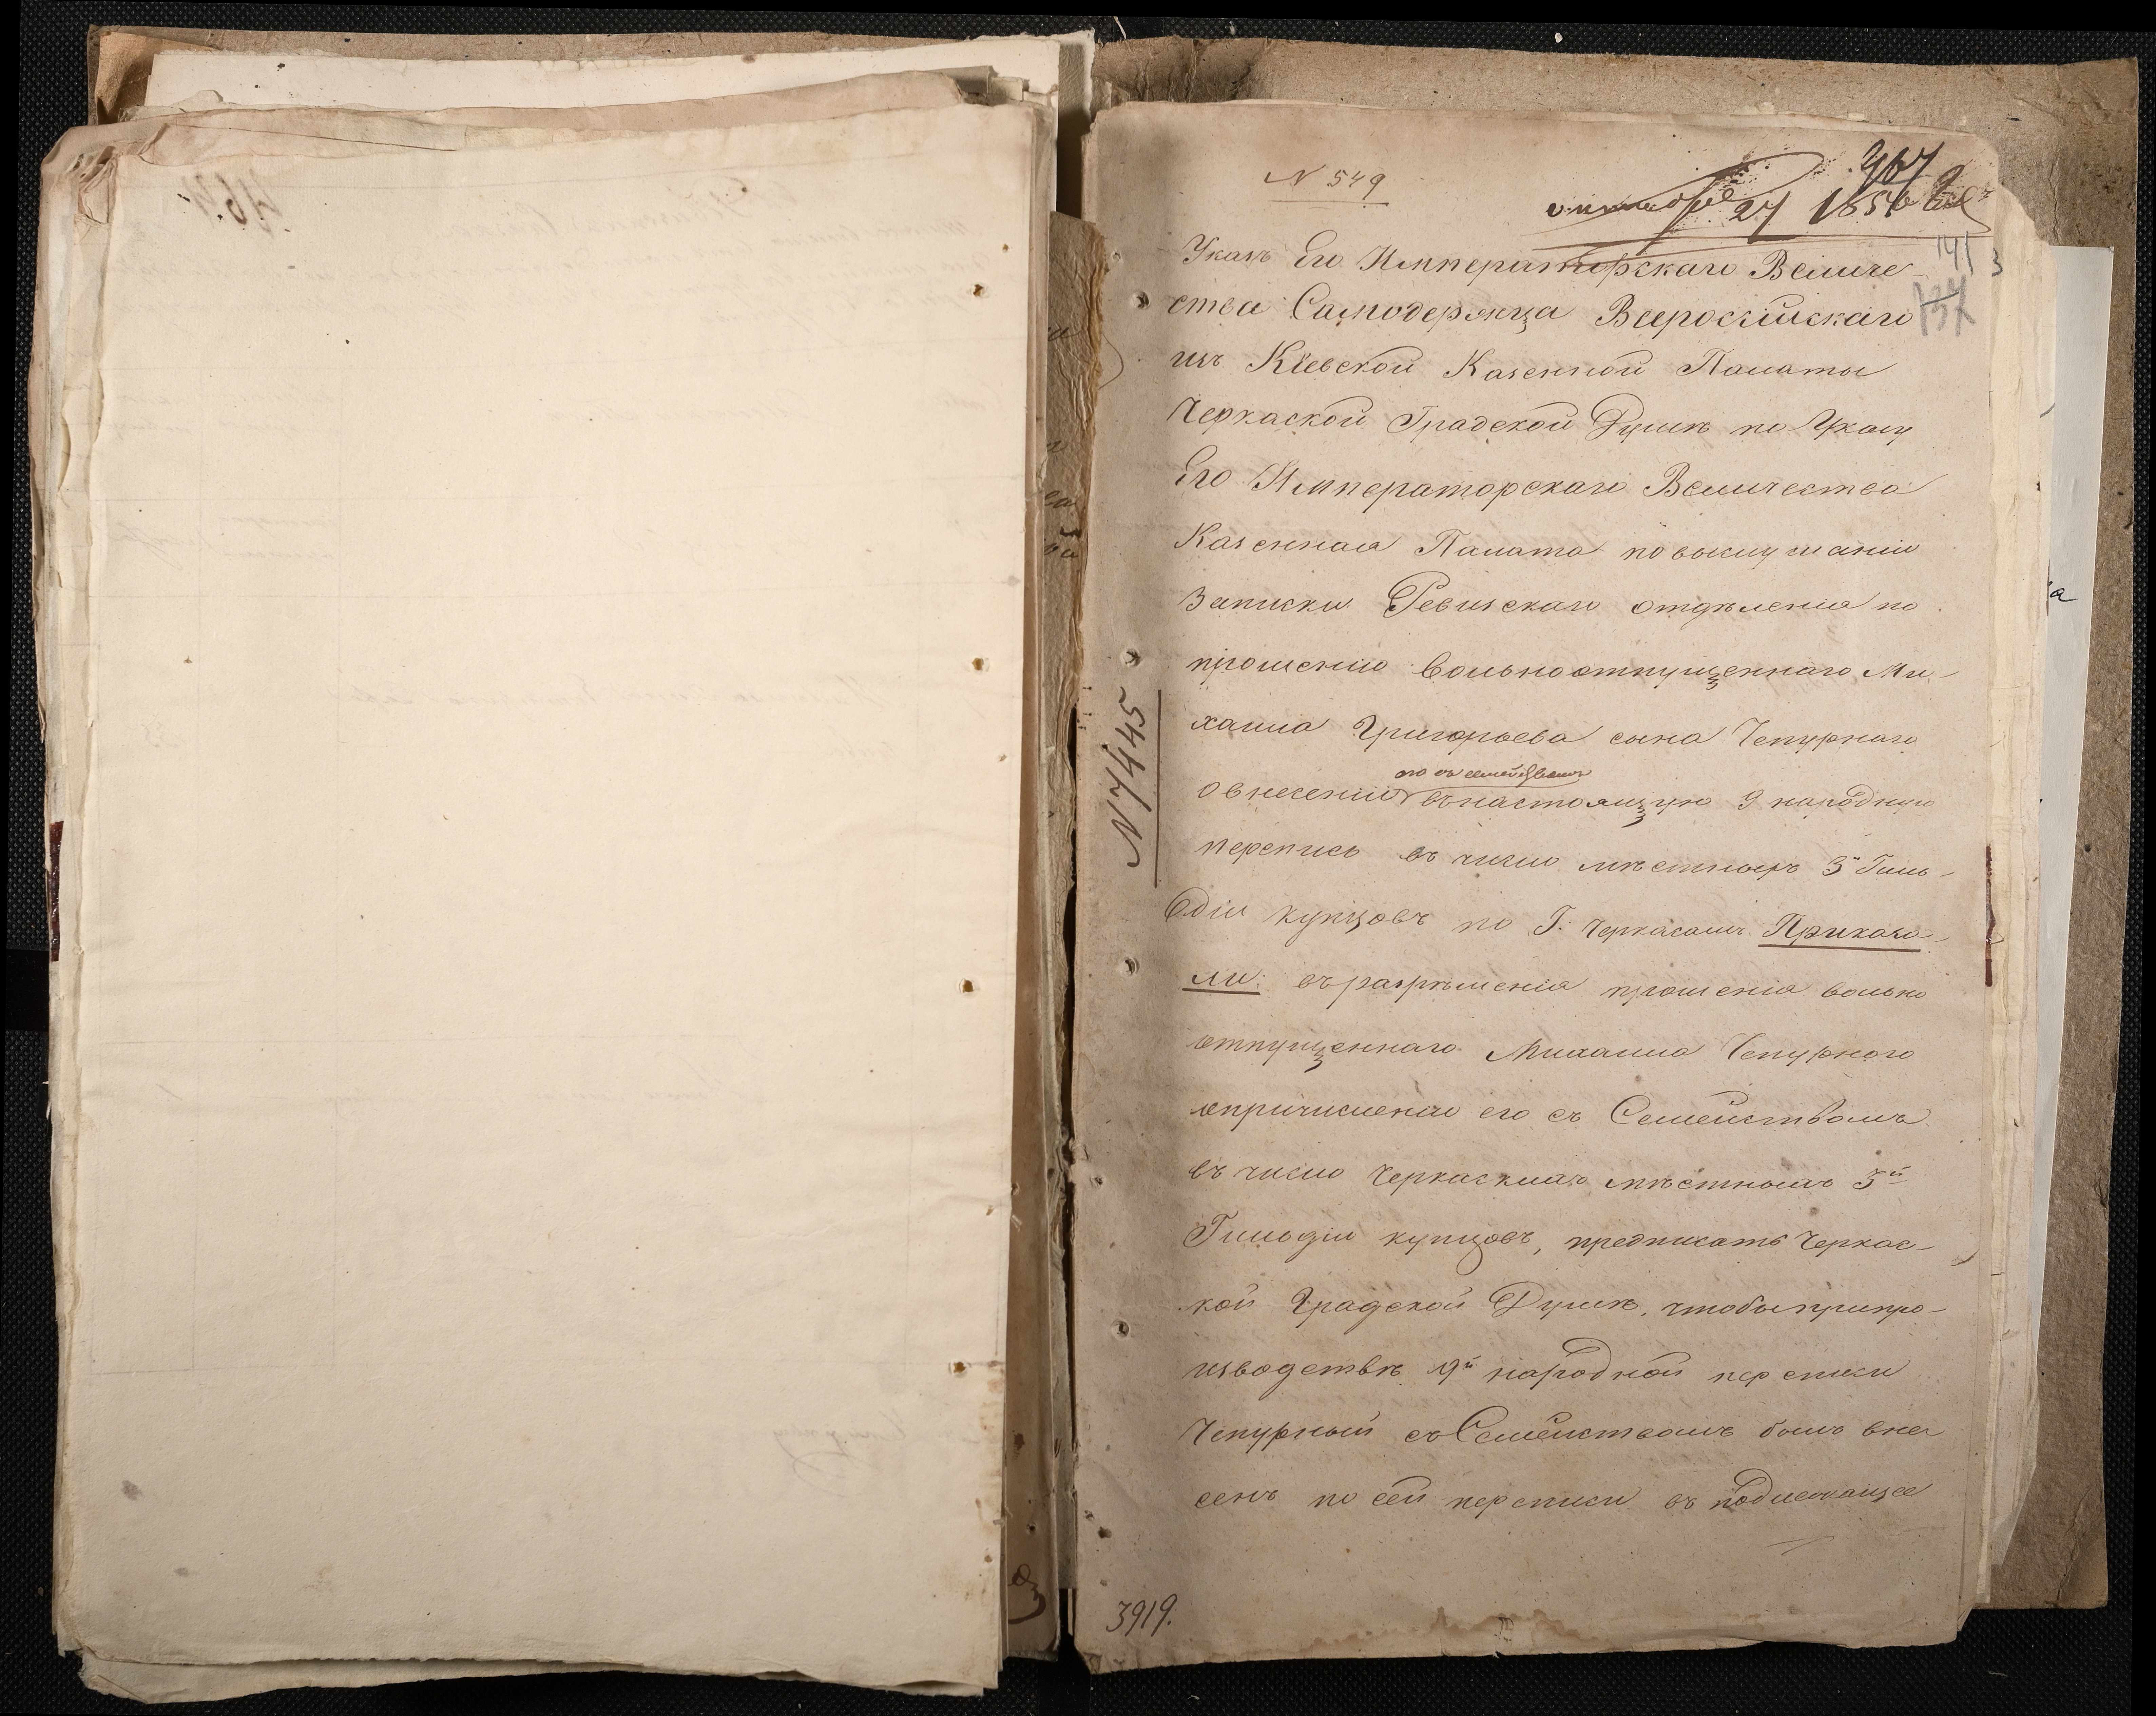 467
N 549
октября 27 1850
141 3
137
Указъ Его Императорскаго Величе-
ства Самодержца Всеросийскаго
изъ Кіевской Казенной Палаты
Черкаской Градской Думѣ по Указу
Его Императорскаго Величества
Казенная Палата по выслушаніи
Записки Ревизскаго отдѣленія по
прошенію вольноотпущеннаго Ми-
хаила Григорьева сына Чепурнаго
его съ семействомъ
о внесеніи въ настоящую 9 народную
перепись въ число мѣстныхъ 3й Гиль-
діи купцовъ по Г. Черкасамъ Приказа-
ли: въ разрѣшенія прошенія вольно
отпущеннаго Михаила Чепурного
опричисленіи его съ Семействомъ
въ число Черкаскихъ мѣстныхъ 3й
Гильдіи купцовъ, предписать Черкас-
кой Градской Думѣ, чтобы припро-
изводствѣ 9й народной переписи
Чепурный съ Семействомъ былъ вне
сенъ по сей переписи въ подлежащее
N 7445
3919.